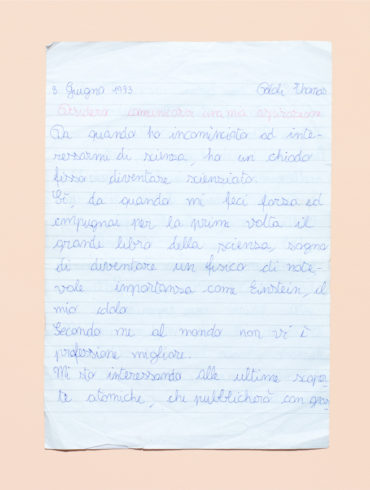 8 Giugno 1993 Thomas
Desidero comunicarvi una mia aspirazione
Da quando ho incominciato ad inte-
ressarmi di scienza, ho un chiodo
fisso diventare scienziato.
Sì, da quando mi feci forza ed
impugnai per la prima volta il
grande libro della scienza, sogno
di diventare un fisico di note-
vole importanza come Einstein, il
mio idolo.
Secondo me al mondo non vi è
professione migliore.
Mi sto interessando alle ultime scoper
te atomiche, che pubblicherò con